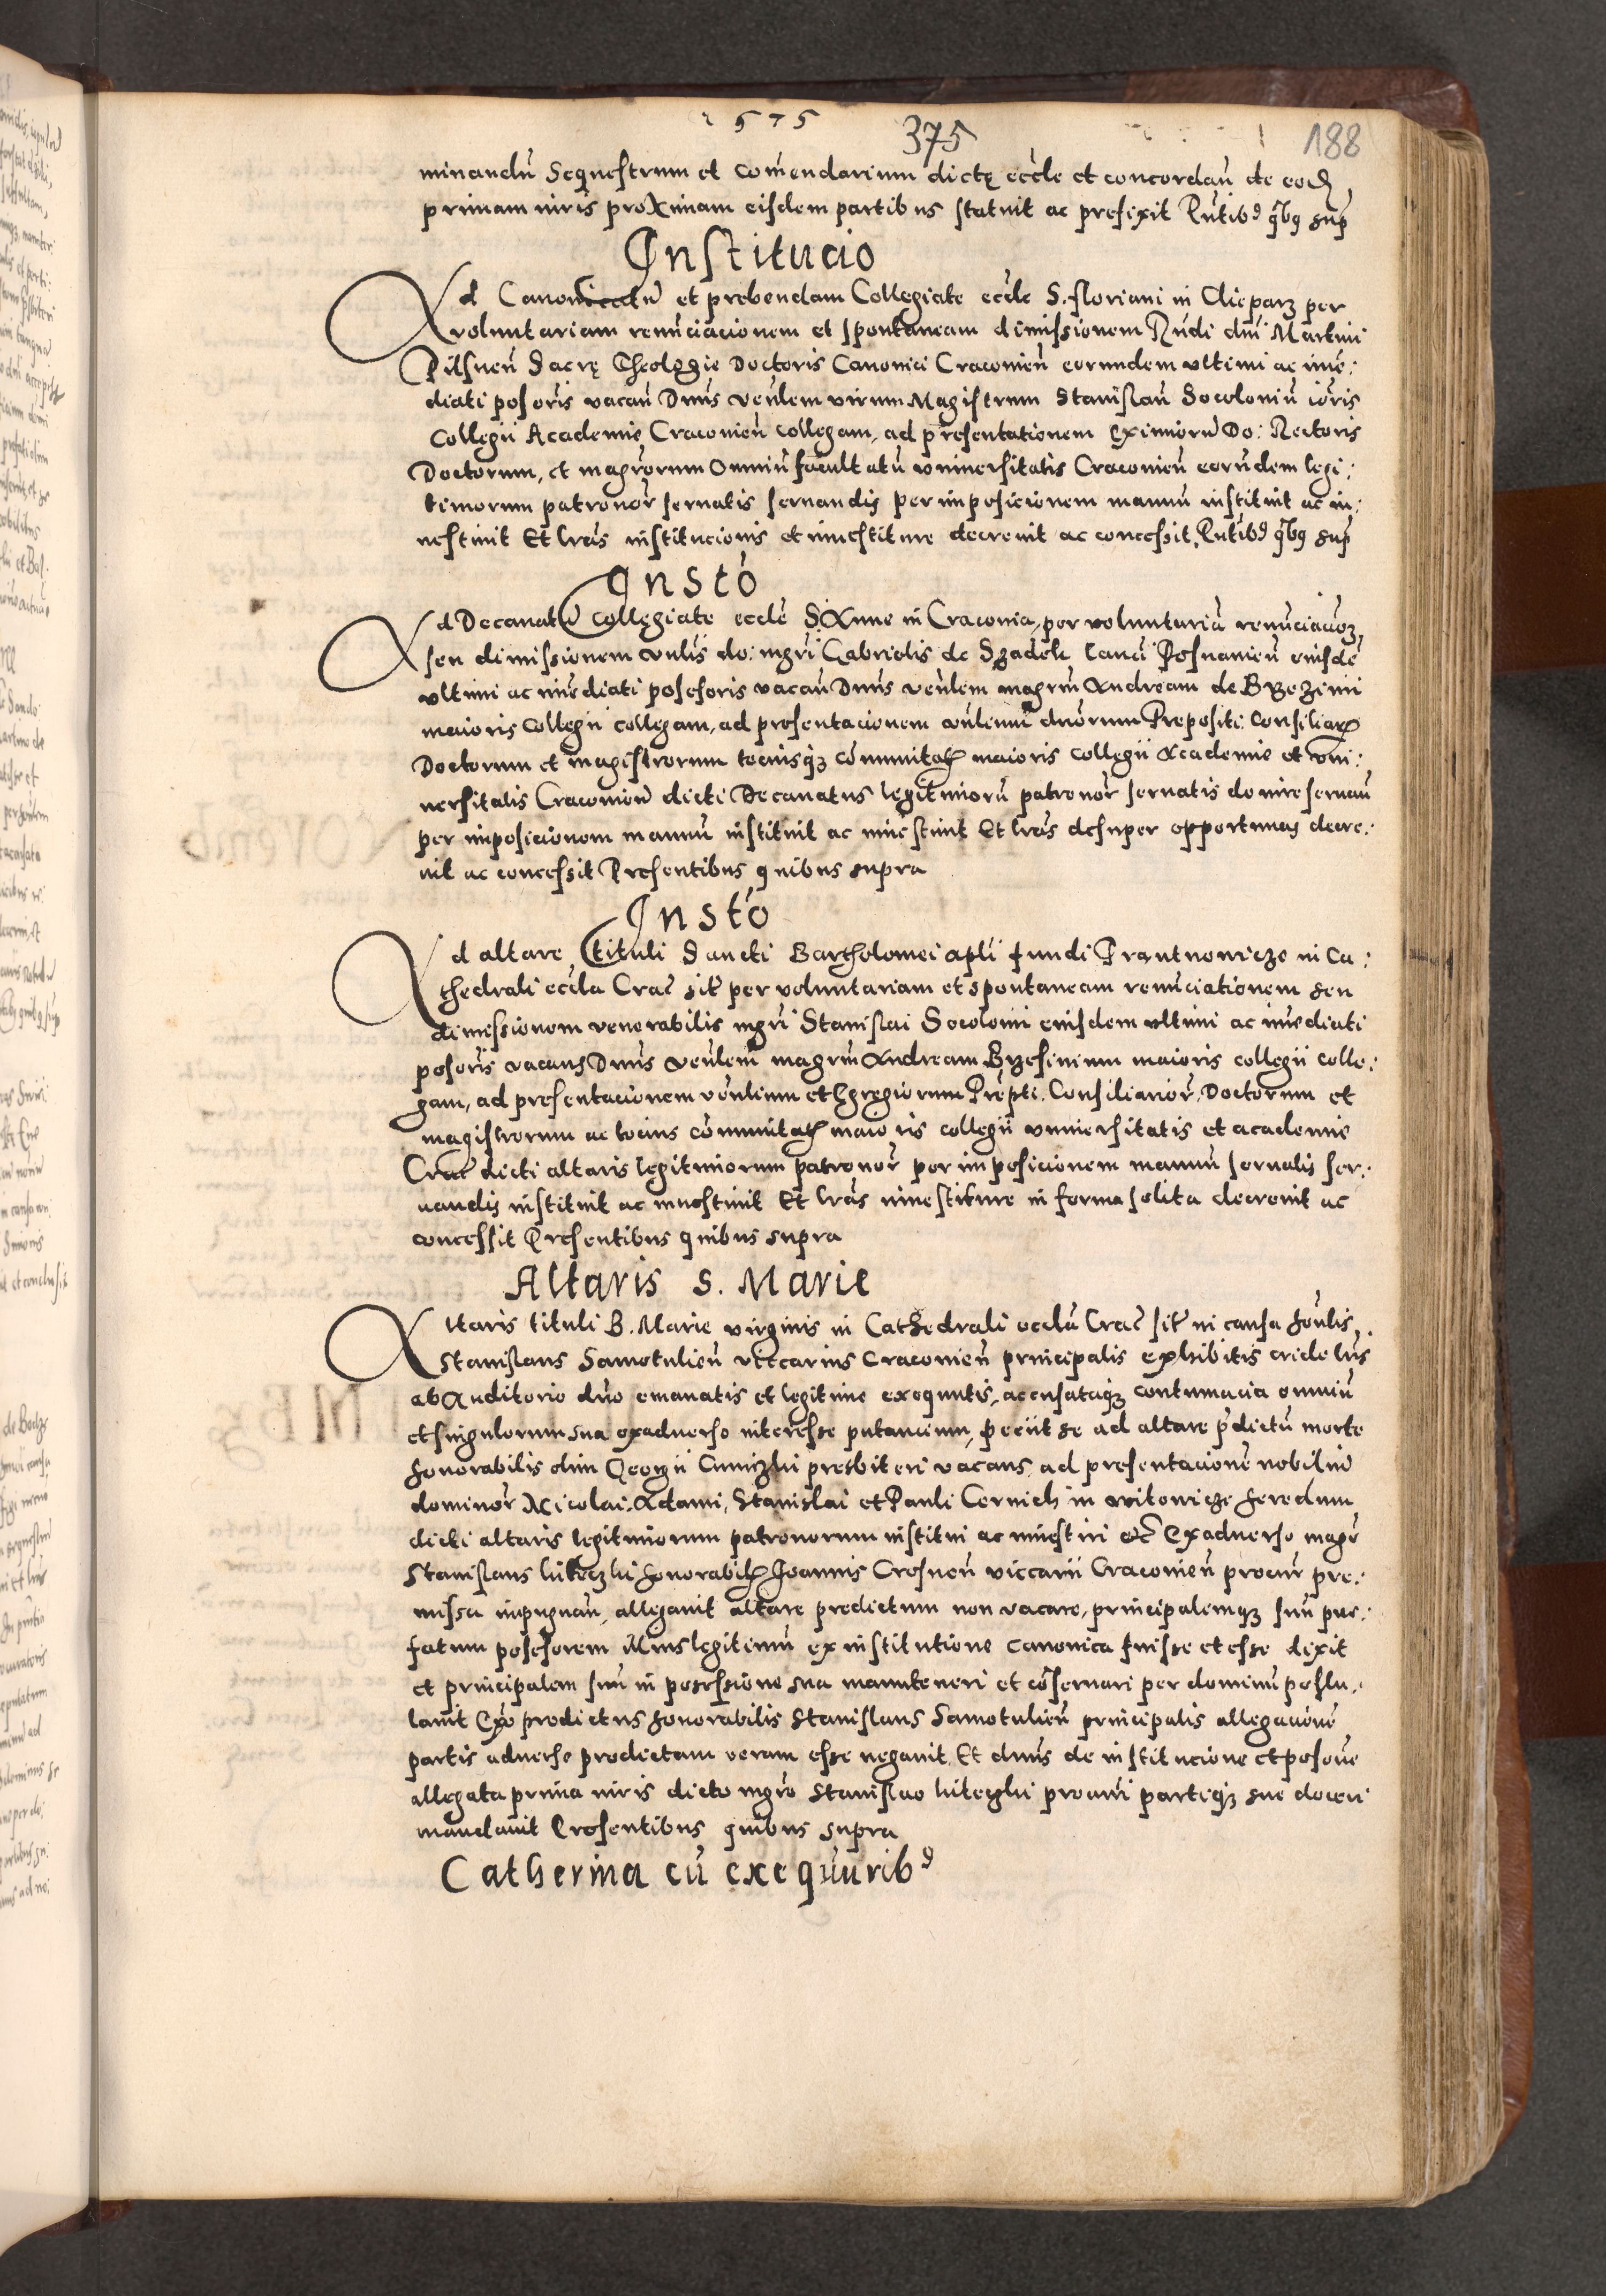 1575
375
188
minandū Sequestrum et comendarium dictę eccle et concordan̄ de eod
primam iuris proximam eisdem partibus statuit ac prefixit Pntibs qbs sup
Institucio
Ad Canonicatū et prebendam Collegiate eccle S. Floriani in Clieparz per
voluntariam renunciacionem et spontaneam dimissionem Rndi dni Martini
Pilsnen̄ Sacrę Theologie Doctoris Canonici Cracovien̄ eorundem ultimi ac ime:
diati posoris vacan̄ Dnus venlem virum Magistrum Stanislau Socoloniū ioris
Collegii Academie Cracovien̄ collegam, ad presentationem Eximiorū Do: Rectoris
Doctorum, et magrorum omniū facultatū universitatis Cracovien̄ eorundem legi:
timorum patronor servatis servandis per imposicionem manuū instituit ac in:
vestivit Et lras institucionis et investiture decrevit ac concessit. Pntibs qbs sup
Insto
Ad Decanatū Collegiate eccle S. Anne in Cracovia, per voluntariā renunciacōz
seu dimissionem vnlis do: mgri Gabrielis de Szadek Canci Posnanien̄ eiusdē
ultimi ac imediati posesoris vacan̄ Dnus venlem magrm Andream de Brzezini
maioris Collegii collegam, ad presentacionem vnlium dnorum Prepositi Consiliar
Doctorum et magistrorum tociusqz comunitat maioris Collegii Academie et vni:
versitatis Cracovien̄ dicti Decanatus legitimorū patronor servatis de iure servan̄
per imposicionem manuū instituit ac investivit Et lras desuper opportunas decre:
vit ac concessit Presentibus quibus supra
Insto
Ad altare tituli Sancti Bartholomei apli fundi Prantnowicze in Ca:
thedrali eccla Crac sit per voluntariam et spontaneam renunciationem seu
dimissionem venerabilis mgri Stanislai Socolonii eiusdem ultimi ac imediati
posoris vacans Dnus venlem magrm Andream Brzesinium maioris collegii colle:
gam, ad presentacionem venlium et Egregiorum Prepti. Consiliarior, Doctorum et
magistrorum ac tocius comunitat maioris collegii universitatis et academie
Crac dicti altaris legitimorum patronor per imposicionem manuū servatis ser:
vandis instituit ac investivit Et lras investiture in forma solita decrevit ac
concessit Presentibus quibus supra
Altaris S. Marie
Altaris tituli B. Marie virginis in Cathedrali eccla Crac sit in causa honlis
Stanislaus Samotulien̄ viccarius Cracovien̄ principalis exhibitis cride lris
ab Auditorio dno emanatis et legitime exequutis, accusataqz contumacia omniū
et singulorum sua exadverso interesse putancium, peciit se ad altare pdictū morte
honorabilis olim Georgii presbiteri vacans ad presentacionē nobiliū
dominor Nicolai, Adami, Stanislai et Pauli Cernich in Witowicze heredum
dicti altaris legitimorum patronorum institui ac investiri etc Exadverso magr
Stanislaus honorabil Joannis Crosnen̄ viccarii Cracovien̄ procur pre:
missa inpugnan̄, allegavit altare predictum non vacare, principalemqz suū pre:
fatum posesorem illius legitimū ex institutione canonica fuisse et esse dixit
et principalem suū in posessione sua manuteneri et coservari per dominū postu:
lavit Exo predictus honorabilis Stanislaus Samotulien̄ principalis allegacionē
partis adverse predictam veram esse negavit. Et dnus de institucione et posōne
allegata prima iuris dicto mgro Stanislao procuri partiqz sue doceri
mandavit Presentibus quibus supra
Catherina cū exequuribs